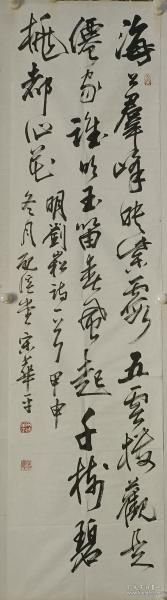 海上羣峰映紫霞五雲樓觀是
僊家誰吹玉笛春風起千樹碧
桃都作花
明劉崧詩一首甲申
冬月宋華平